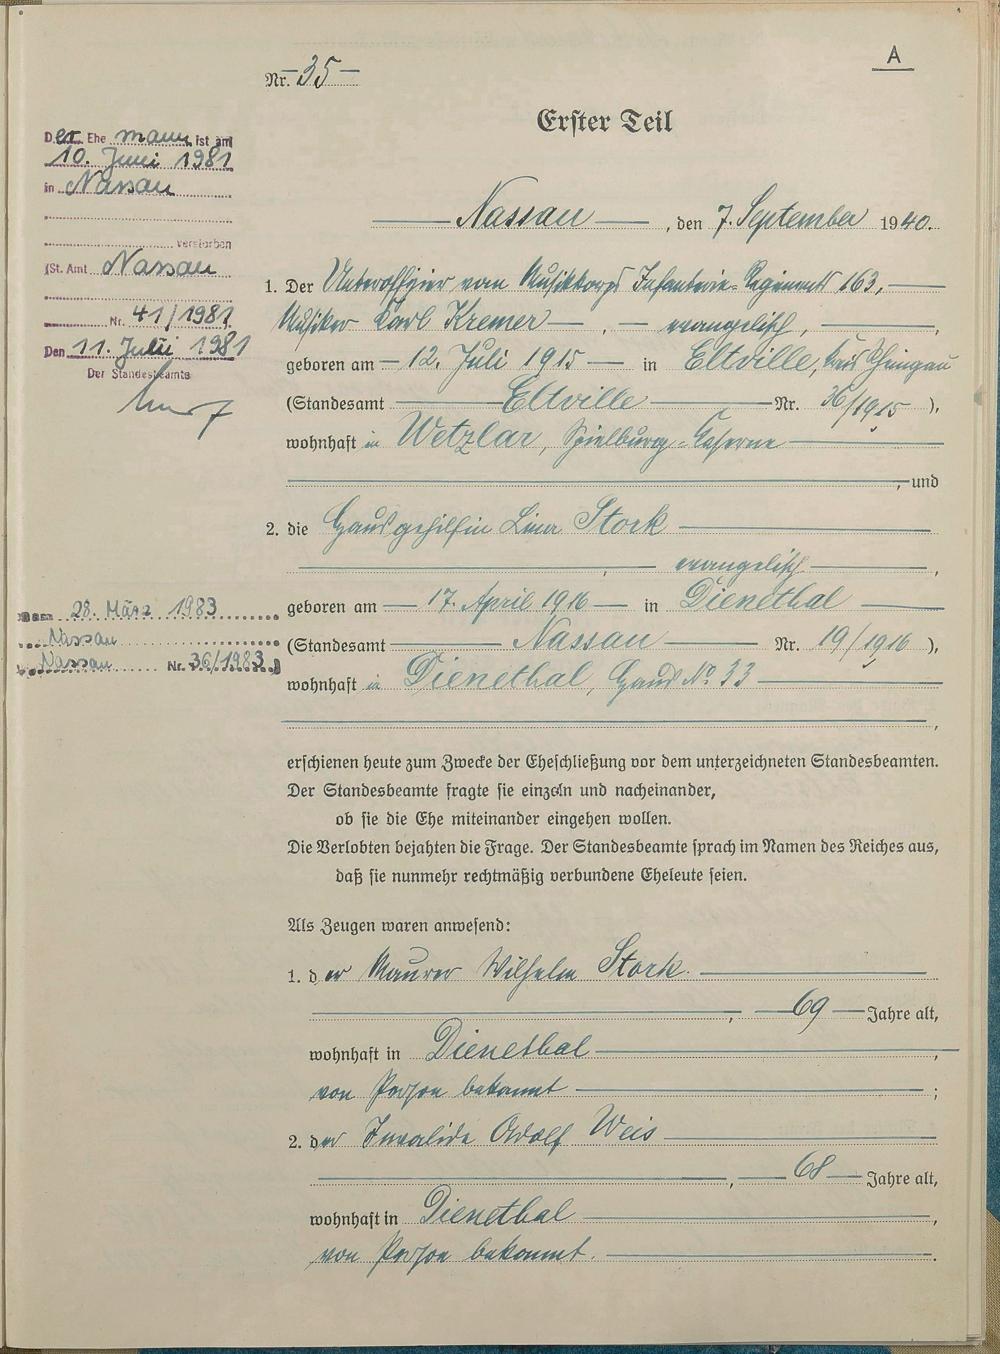 A
Nr. 35
Erster Teil
Nassau, den 7. September 1940.
1. Der Unteroffizier vom Musikkorps Infanterie-Regiment 163,
Musiker Karl Kremer, evangelisch,
geboren am 12. Juli 1915 in Eltville, Kreis Rheingau
(Standesamt Eltville Nr. 36/1915),
wohnhaft in Wetzlar, Spielburg-Caserne
, und
2. die Hausgehilfin Lina Stork
, evangelisch,
geboren am 17. April 1916 in Dienethal
(Standesamt Nassau Nr. 19/1916),
wohnhaft in Dienethal, Haus No 33
,
erschienen heute zum Zwecke der Eheschließung vor dem unterzeichneten Standesbeamten.
Der Standesbeamte fragte sie einzeln und nacheinander,
ob sie die Ehe miteinander eingehen wollen.
Die Verlobten bejahten die Frage. Der Standesbeamte sprach im Namen des Reiches aus,
daß sie nunmehr rechtmäßig verbundene Eheleute seien.
Als Zeugen waren anwesend:
1. der Maurer Wilhelm Stork.
, 69 Jahre alt,
wohnhaft in Dienethal,
von Person bekannt;
2. der Invalide Adolf Weis
, 68 Jahre alt,
wohnhaft in Dienethal,
von Person bekannt.
Der Ehemann ist am
10. Juni 1981
in Nassau
verstorben
(St. Amt Nassau
Nr. 41/1981
Den 11. Julii 1981
Der Standesbeamte
28. März 1983
Nassau
Nassau Nr. 36/1983